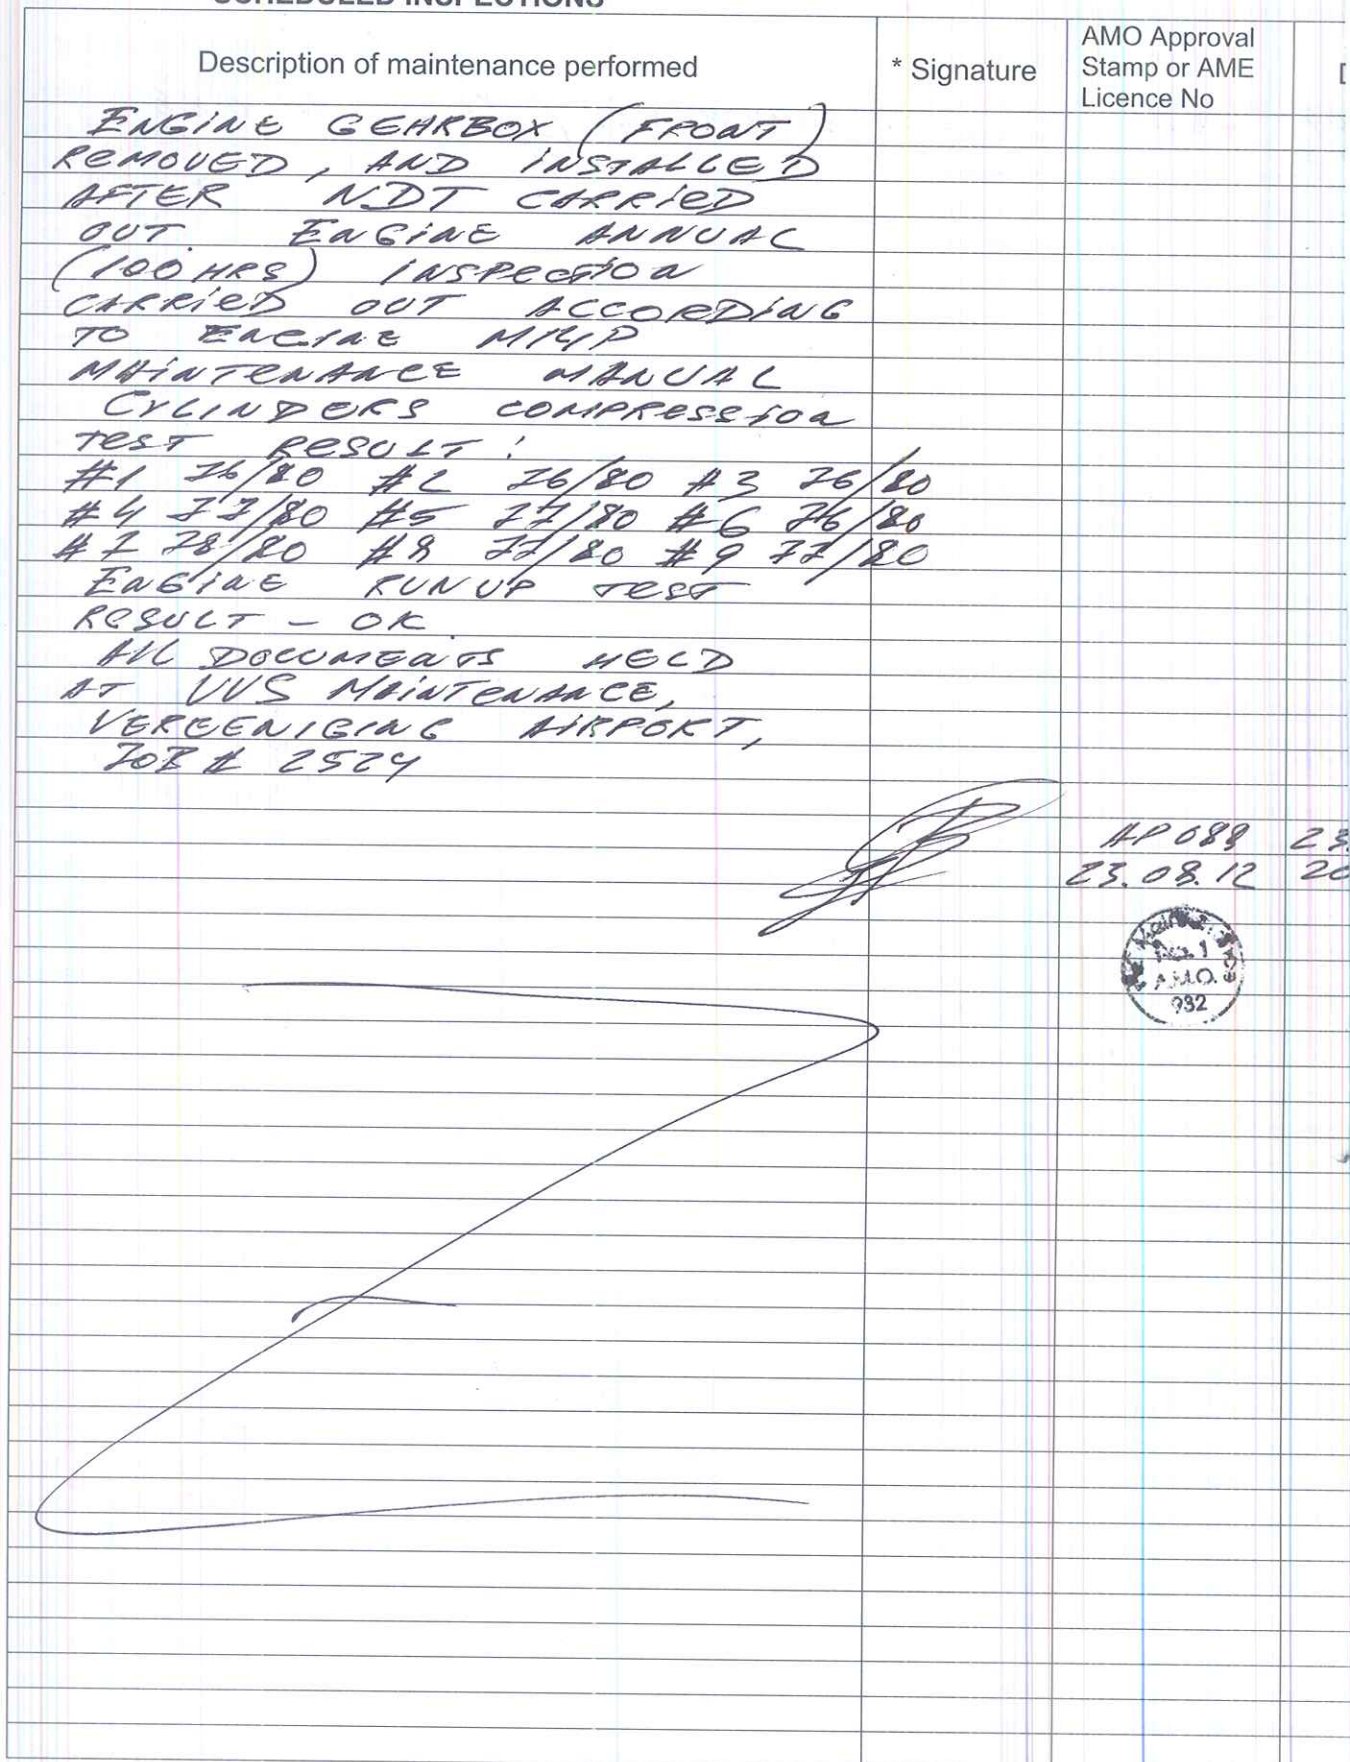 SCHEDULED INSPECTIONS
Description of maintenance performed
* Signature
AMO Approval
Stamp or AME
Licence No
ENGINE GEARBOX (FRONT)
REMOVED, AND INSTALLED
AFTER NDT CARRIED
OUT. ENGINE ANNUAL
(100 HRS) INSPECTION
CARRIED OUT ACCORDING
TO ENGINE M14P
MAINTENANCE MANUAL
CYLINDERS COMPRESSION
TEST RESULT:
#1 76/80 #2 76/80 #3 76/80
#4 77/80 #5 77/80 #6 76/80
#7 78/80 #8 77/80 #9 77/80
ENGINE RUNUP TEST
RESULT - OK.
ALL DOCUMENTS HELD
AT VVS MAINTENANCE,
VEREENIGING AIRPORT,
JOB # 2524
AP 088 23.
23.08.12 20
Maintenance
No. 1
A.M.O.
932